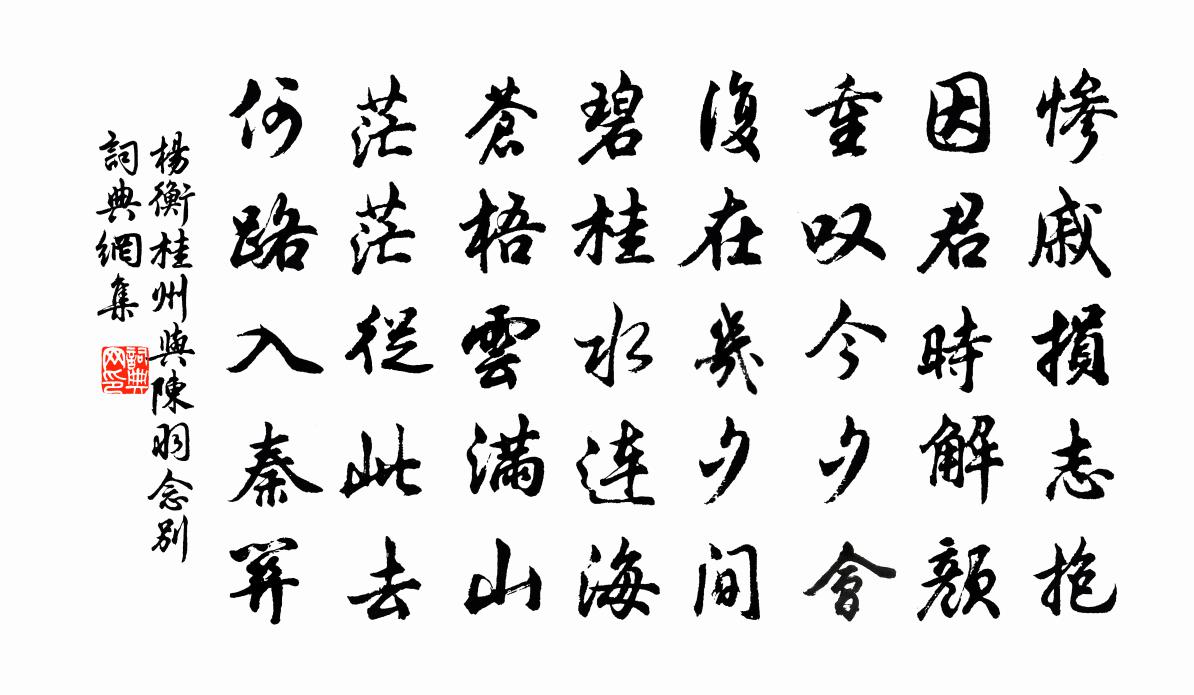 慘戚損志抱
因君時解顏
重叹今夕會
復在幾夕間
碧桂水連海
蒼梧雲滿山
茫茫從此去
何路入秦關
楊衡桂州與陳羽念別
詞典網集
詞典
网印